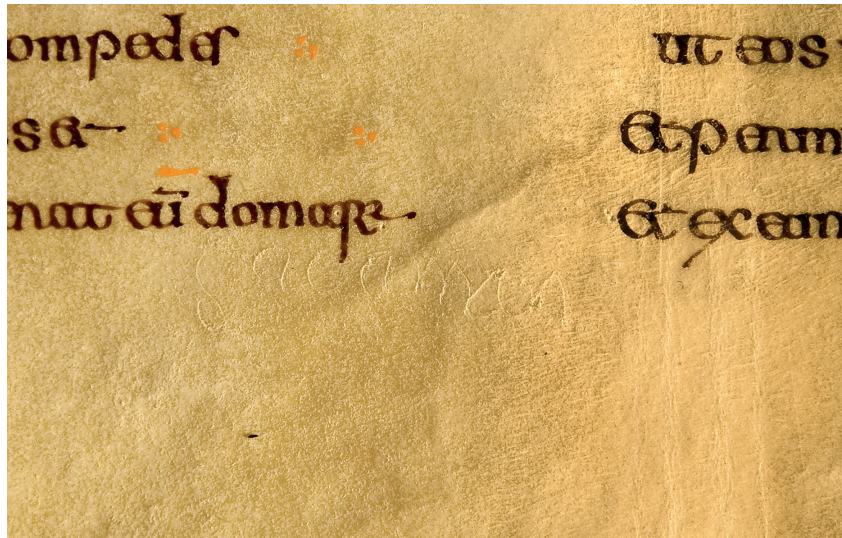 ompedes
s et
rat eū domare
ut eos
Et perm
Et exeun